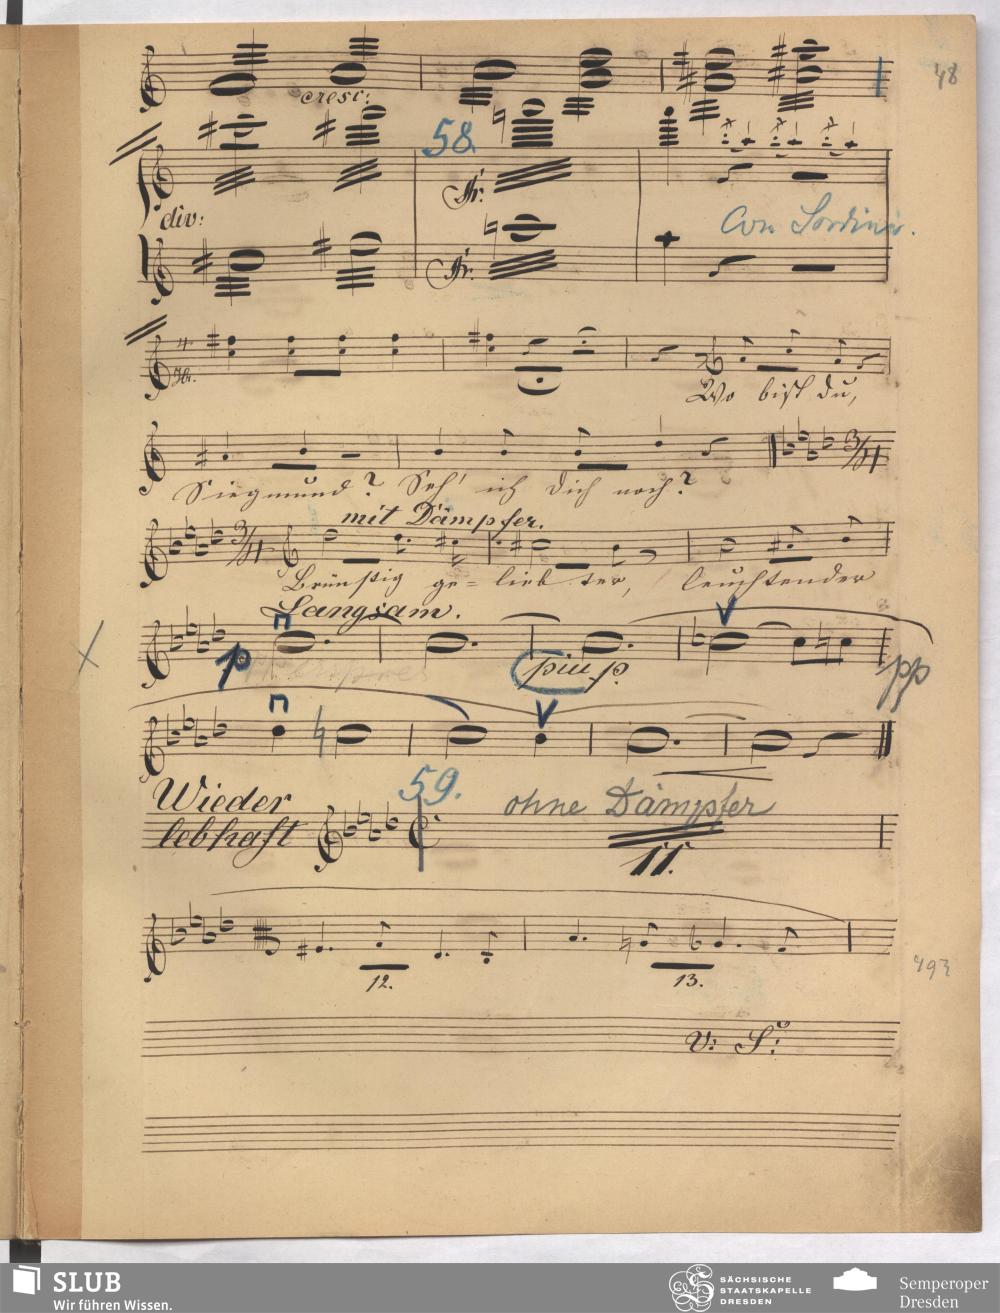 48
cresc:
58.
div:
Con Sordini.
Wo bist du,
Siegmund? Seh' ich dich noch?
mit Dämpfer.
Brünstig ge= lieb ter, leuchtender
Langsam.
p
più p.
pp
59.
Wieder
lebhaft
ohne Dämpfer
11.
12.
13.
V: S:
SLUB
Wir führen Wissen.
SÄCHSISCHE
STAATSKAPELLE
DRESDEN
Semperoper
Dresden